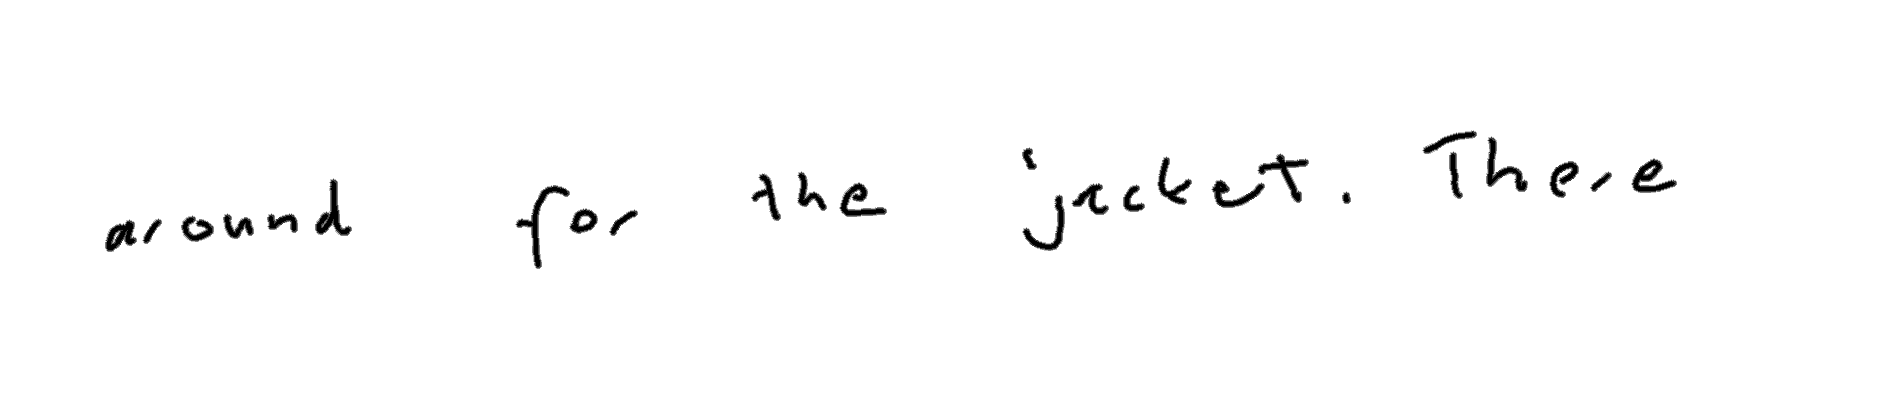 around for the jacket. There